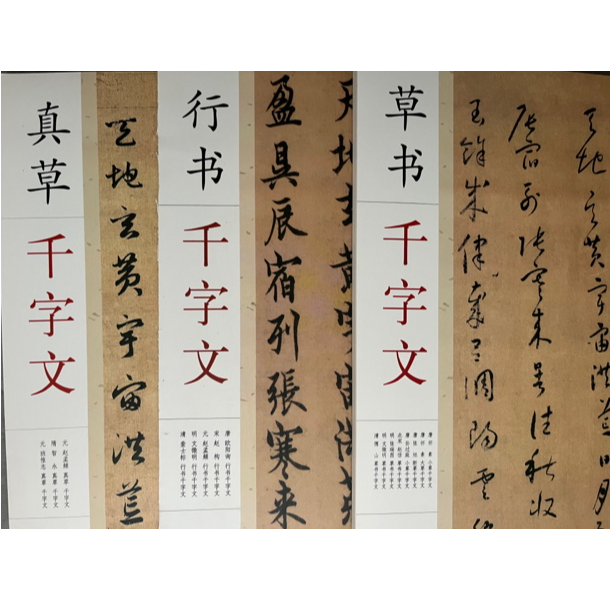 真草
千字文
元 赵孟頫 真草千字文
隋 智永 真草千字文
天地玄黄宇宙洪荒
行书
千字文
唐 欧阳询 行书千字文
宋 赵构 行书千字文
元 赵孟頫 行书千字文
明 文徵明 行书千字文
天地玄黄宇宙洪荒
盈昃辰宿列張寒来
草书
千字文
天地玄黄宇宙洪荒日月
辰宿列张寒来暑往秋收
玉馀成律岁吕调阳云